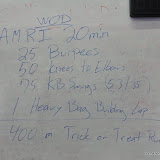 WOD
AMRI 20min
25 Burpees
50 Knees to Elbows
75 KB Swings (53/35)
1 Heavy Bag Building Lap
400 m Trick or Treat